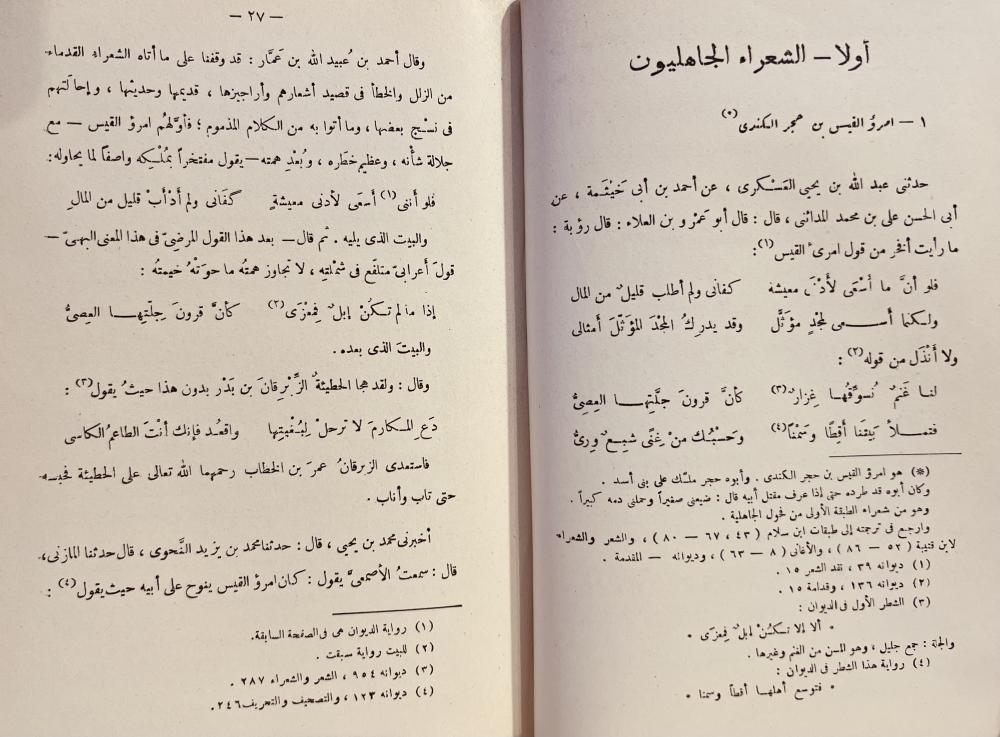 أولا — الشعراء الجاهليون
١ — امرؤ القيس بن حجر الكندى(*)
حدثنى عبد الله بن يحيى العَسْكرى ، عن أحمد بن أبى خَيْثَمة ، عن
أبى الحسن على بن محمد المدائنى ، قال : قال أبو عَمْرو بن العلاء : قال رؤبة :
ما رأيت أفخر من قول امرئ القيس(١) :
فلو أنَّ ما أَسْعَى لأَدْنَى معيشة كفانى ولم أطلب قليلٌ من المال
ولكنما أســـعى لمجْدٍ مؤثَّل وقد يدركُ المجْدَ المؤَثَّلَ أمثالى
ولا أَنْذَل من قوله(٢) :
لنـا غَنمٌ نُسوِّقُهـا غِزارٌ(٣) كأنَّ قرونَ جِلَّتِهـــا العِصِىُّ
فتمـــلأ بَيتَنا أَقِطًا وَسَمْنًا(٤) وحَسْبُـك منْ غِنًى شِبَـعٌ ورِىُّ
(*) هو امرؤ القيس بن حجر الكندى . وأبوه حجر ملك على بنى أسد .
وكان أبوه قد طرده حتى إذا عرف مقتل أبيه قال : ضيعنى صغيراً وحملنى دمه كبيراً .
وهو من شعراء الطبقة الأولى من فحول الجاهلية .
وارجع فى ترجمته إلى طبقات ابن سلام ( ٤٣ ، ٦٧ — ٨٠ ) ، والشعر والشعراء
لابن قتيبة ( ٥٢ — ٨٦ ) ، والأغانى ( ٨ — ٦٣ ) ، وديوانه — المقدمة .
(١) ديوانه ٣٩ ، نقد الشعر ١٥ .
(٢) ديوانه ١٣٦ ، وقدامة ١٥ .
(٣) الشطر الأول فى الديوان :
* ألا إلا تـكـنْ إبلٌ فمعزى *
والجلة : جمع جليل ، وهو المسن من الغنم وغيرها .
(٤) رواية هذا الشطر فى الديوان :
* فتوسع أهلهـا أقطاً وسمنا *
— ٢٧ —
وقال أحمد بن عُبيد الله بن عَمَّار : قد وقفنا على ما أتاه الشعراء القدماء
من الزلل والخطأ فى قصيد أشعارهم وأراجيزها ، قديمها وحديثها ، وإحالتهم
فى نسْج بعضها ، وما أتوا به من الكلام المذموم ؛ فأوَّلهُم امرؤ القيس — مع
جلالة شأْنه ، وعظيم خَطَره ، وبُعْد همته — يقول مفتخراً بمُلْكِه واصفاً لما يحاوله :
فلو أننى(١) أَسعَى لأَدنى معيشةٍ كفَانى ولم أَدْأَبْ قليل من المالِ
والبيت الذى يليه . ثم قال — بعد هذا القول المرضىّ فى هذا المعنى البهىّ —
قولَ أعرابىّ متلفّع فى شمْلتِه ، لا تجاوز همتُه ما حوَتْهُ خيمتُه :
إذا ما لم تـكنْ إبلٌ فمِعْزَى(٢) كأنَّ قرونَ جِلّتِهـــا العِصِىُّ
والبيتَ الذى بعده .
وقال : ولقد هجا الحطيئةُ الزِّبْرِقانَ بن بَدْر بدون هذا حيثُ يقول(٣) :
دَعِ المـكارمَ لا ترحلْ لبُغْيتِها واقعُد فإنك أنْتَ الطاعمُ الكاسى
فاستعدى الزبرقانُ عمرَ بن الخطاب رحمهما الله تعالى على الحطيئة فحبسه
حتى تاب وأناب .
أخبرنى محمد بن يحيى ، قال : حدثنا محمد بن يزيد النَّحوى ، قال حدثنا المازنى ،
قال : سمعتُ الأصمعىَّ يقول : كان امرؤ القيس ينوح على أبيه حيث يقول(٤) :
(١) رواية الديوان هى فى الصفحة السابقة.
(٢) للبيت رواية سبقت .
(٣) ديوانه ٩٥٤ ، الشعر والشعراء ٢٨٧ .
(٤) ديوانه ١٢٣ ، والتصحيف والتحريف ٢٤٦ .